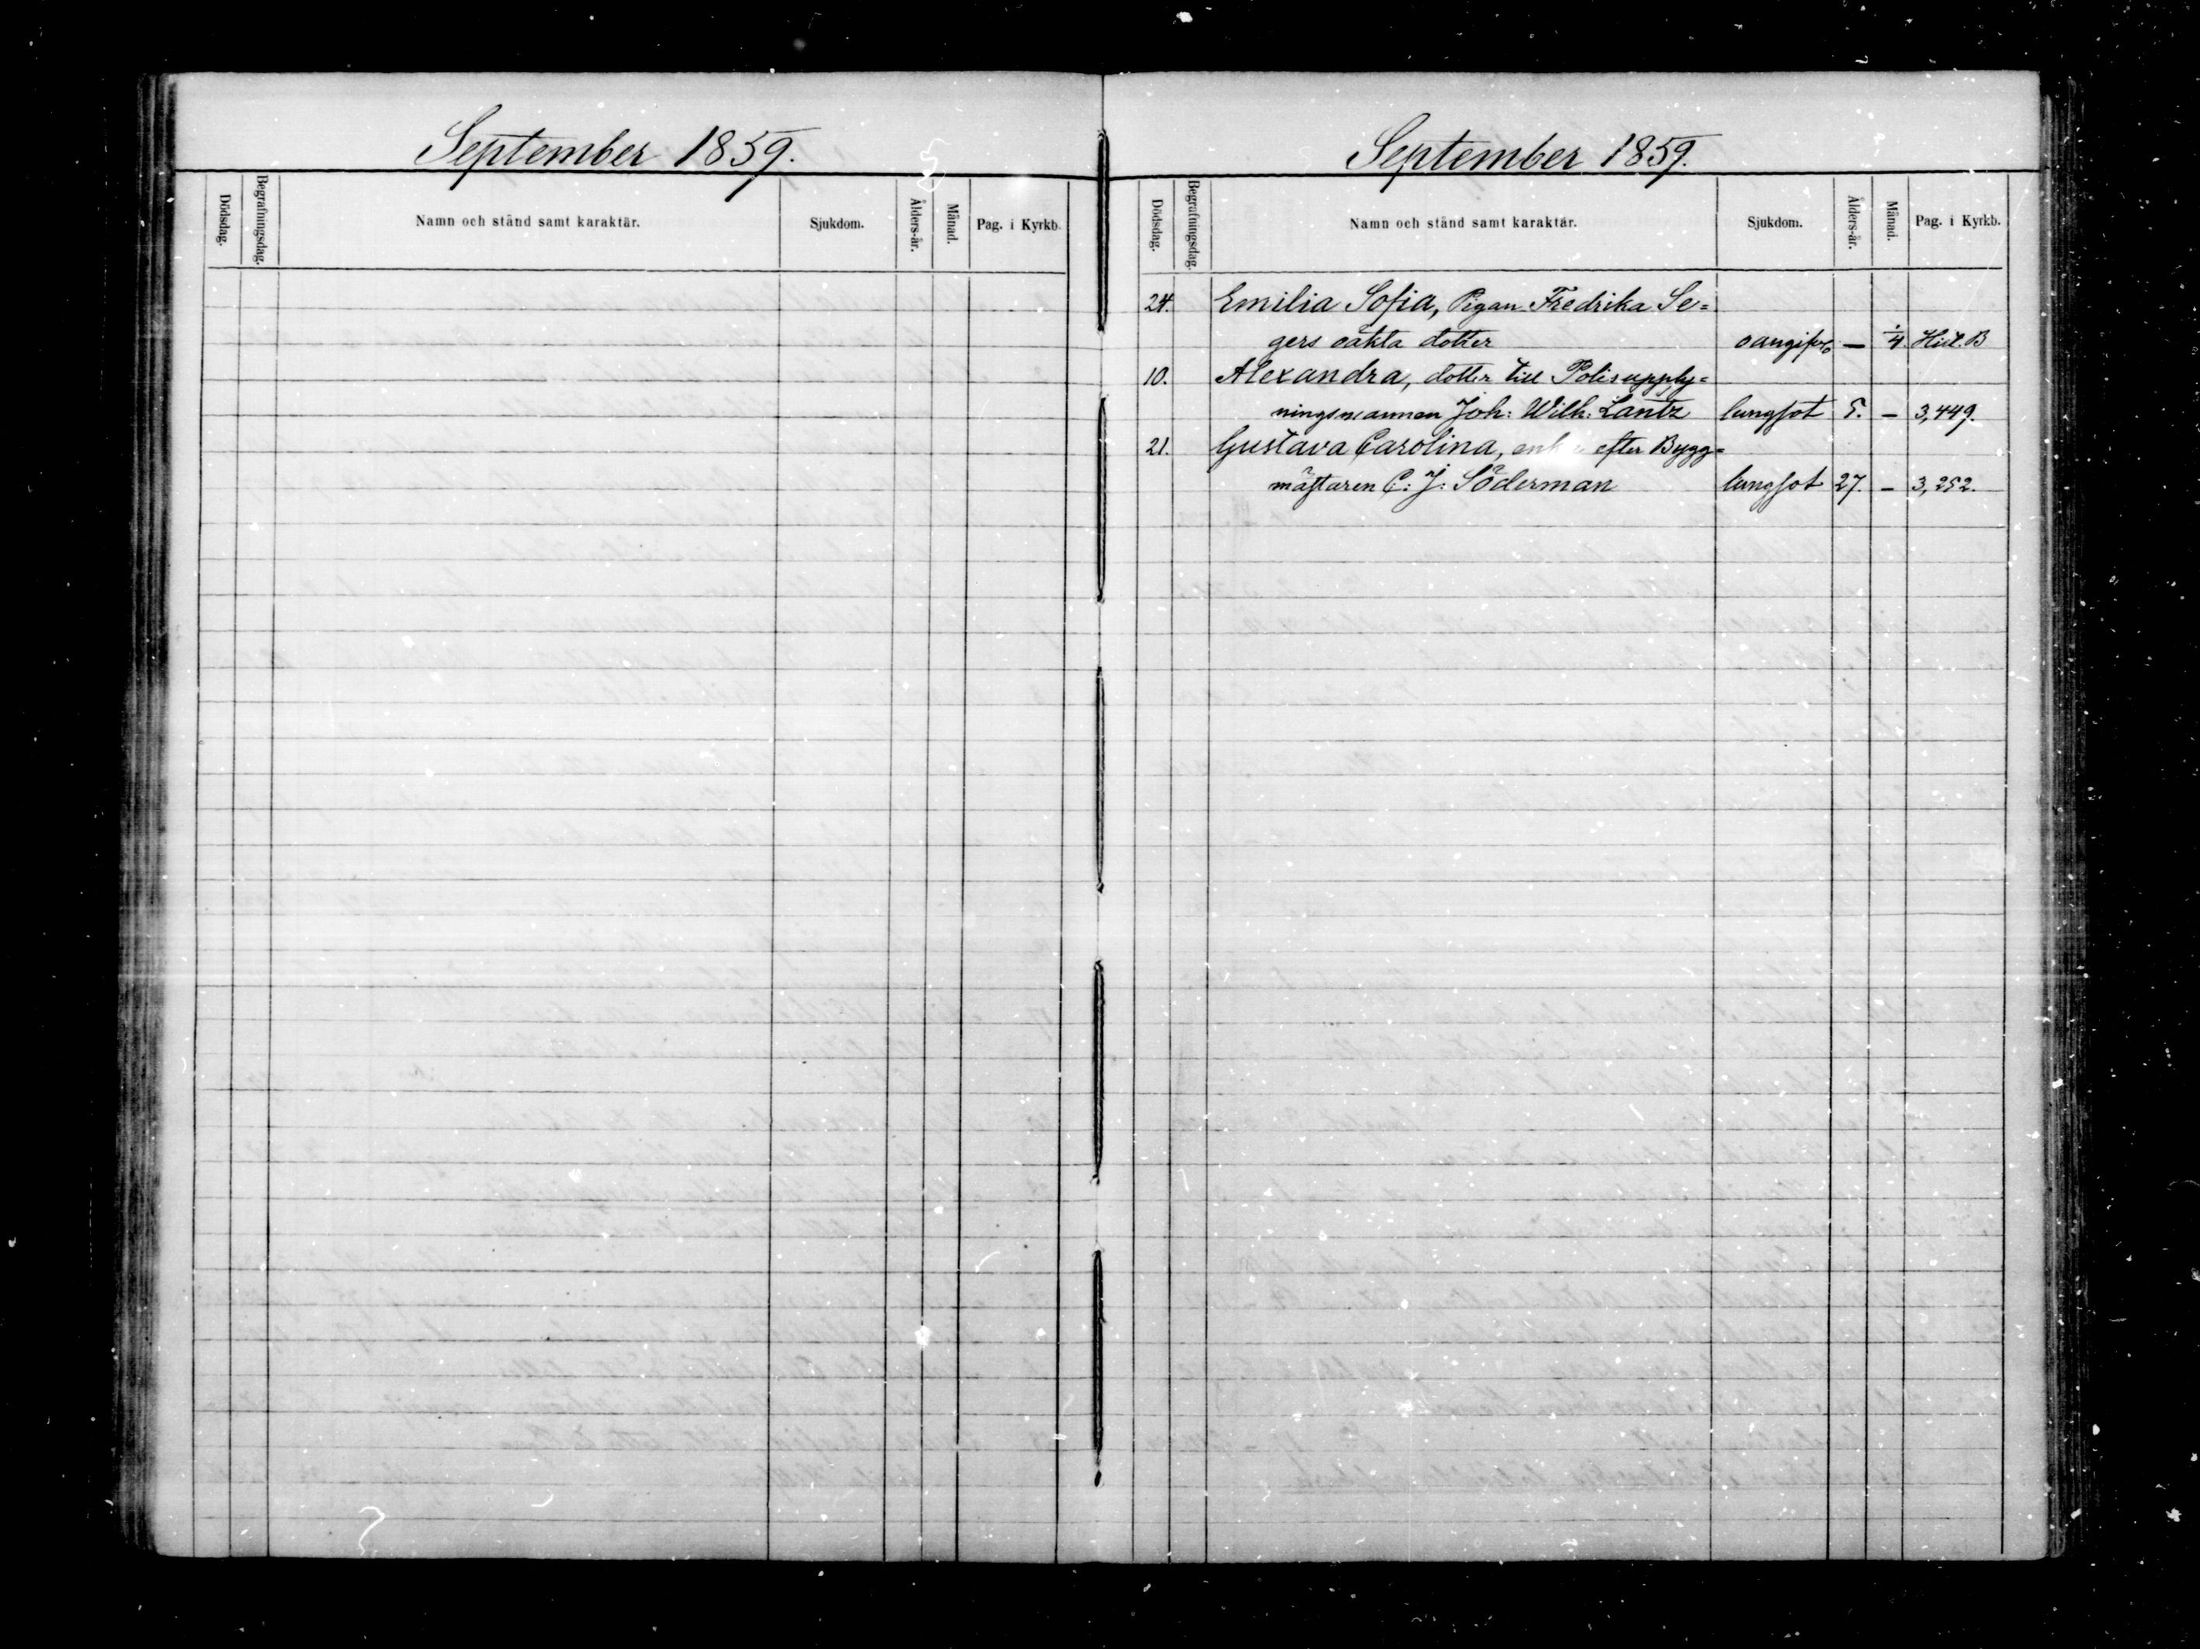 September 1859.
Dödsdag. Begrafningsdag. Namn och stånd samt karaktär. Sjukdom. Ålders-år. Månad. Pag. i Kyrkb.
September 1859.
Dödsdag. Begrafningsdag. Namn och stånd samt karaktär. Sjukdom. Ålders-år. Månad. Pag. i Kyrkb.
24. Emilia Sofia, Pigan Fredrika Se=
gers oäkta dotter — 1/4. B
10. Alexandra, dotter till Polisupply=
ningsmannen Joh: Wilh: Lantz lungsot 5. — 3,449.
21. Gustava Carolina, efter Bygg=
mästaren C: J: Söderman lungsot 27. — 3,252.